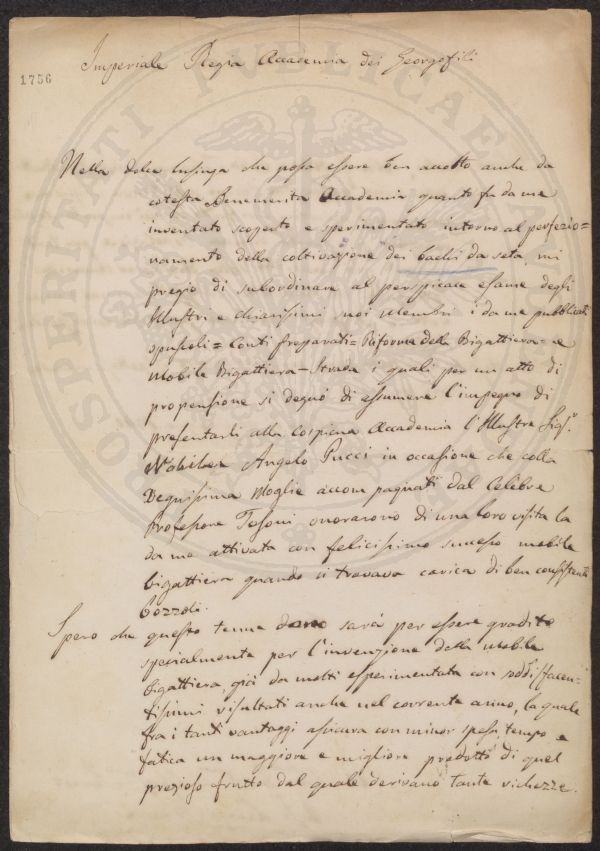 Imperiale Regia Accademia dei Georgofili
1756
PROSPERITATI PVBLICAE
Nella dolce lusinga che possa essere ben accetto anche da
cotesta Benemerita Accademia quanto fu da me
inventato scoperto e sperimentato intorno al perfezio=
namento della coltivazione dei bachi da seta, mi
pregio di subordinare al perspicace esame degli
Illustri e chiarissimi suoi Membri i da me pubblicati
opuscoli = Conti preparati = Riforma della Bigattiera = e
Mobile Bigattiera - Strada i quali per un atto di
propensione si degnò di assumere l'impegno di
presentarli alla cospicua Accademia l'Illustre Sigr.
Angelo Pucci in occasione che colla
Degnissima Moglie accompagnati dal Celebre
Professore Tosoni onorarono di una loro visita la
da me attivata con felicissimo successo mobile
bigattiera quando si trovava carica di ben consistenti
bozzoli.
Spero che questo tenue dono sarà per essere gradito
specialmente per l'invenzione della Mobile
Bigattiera, già da molti esperimentata con soddisfacen=
tissimi risultati anche nel corrente anno, la quale
fra i tanti vantaggi assicura con minor spesa, tempo e
fatica un maggiore e migliore prodotto di quel
prezioso frutto dal quale derivano tante richezze.